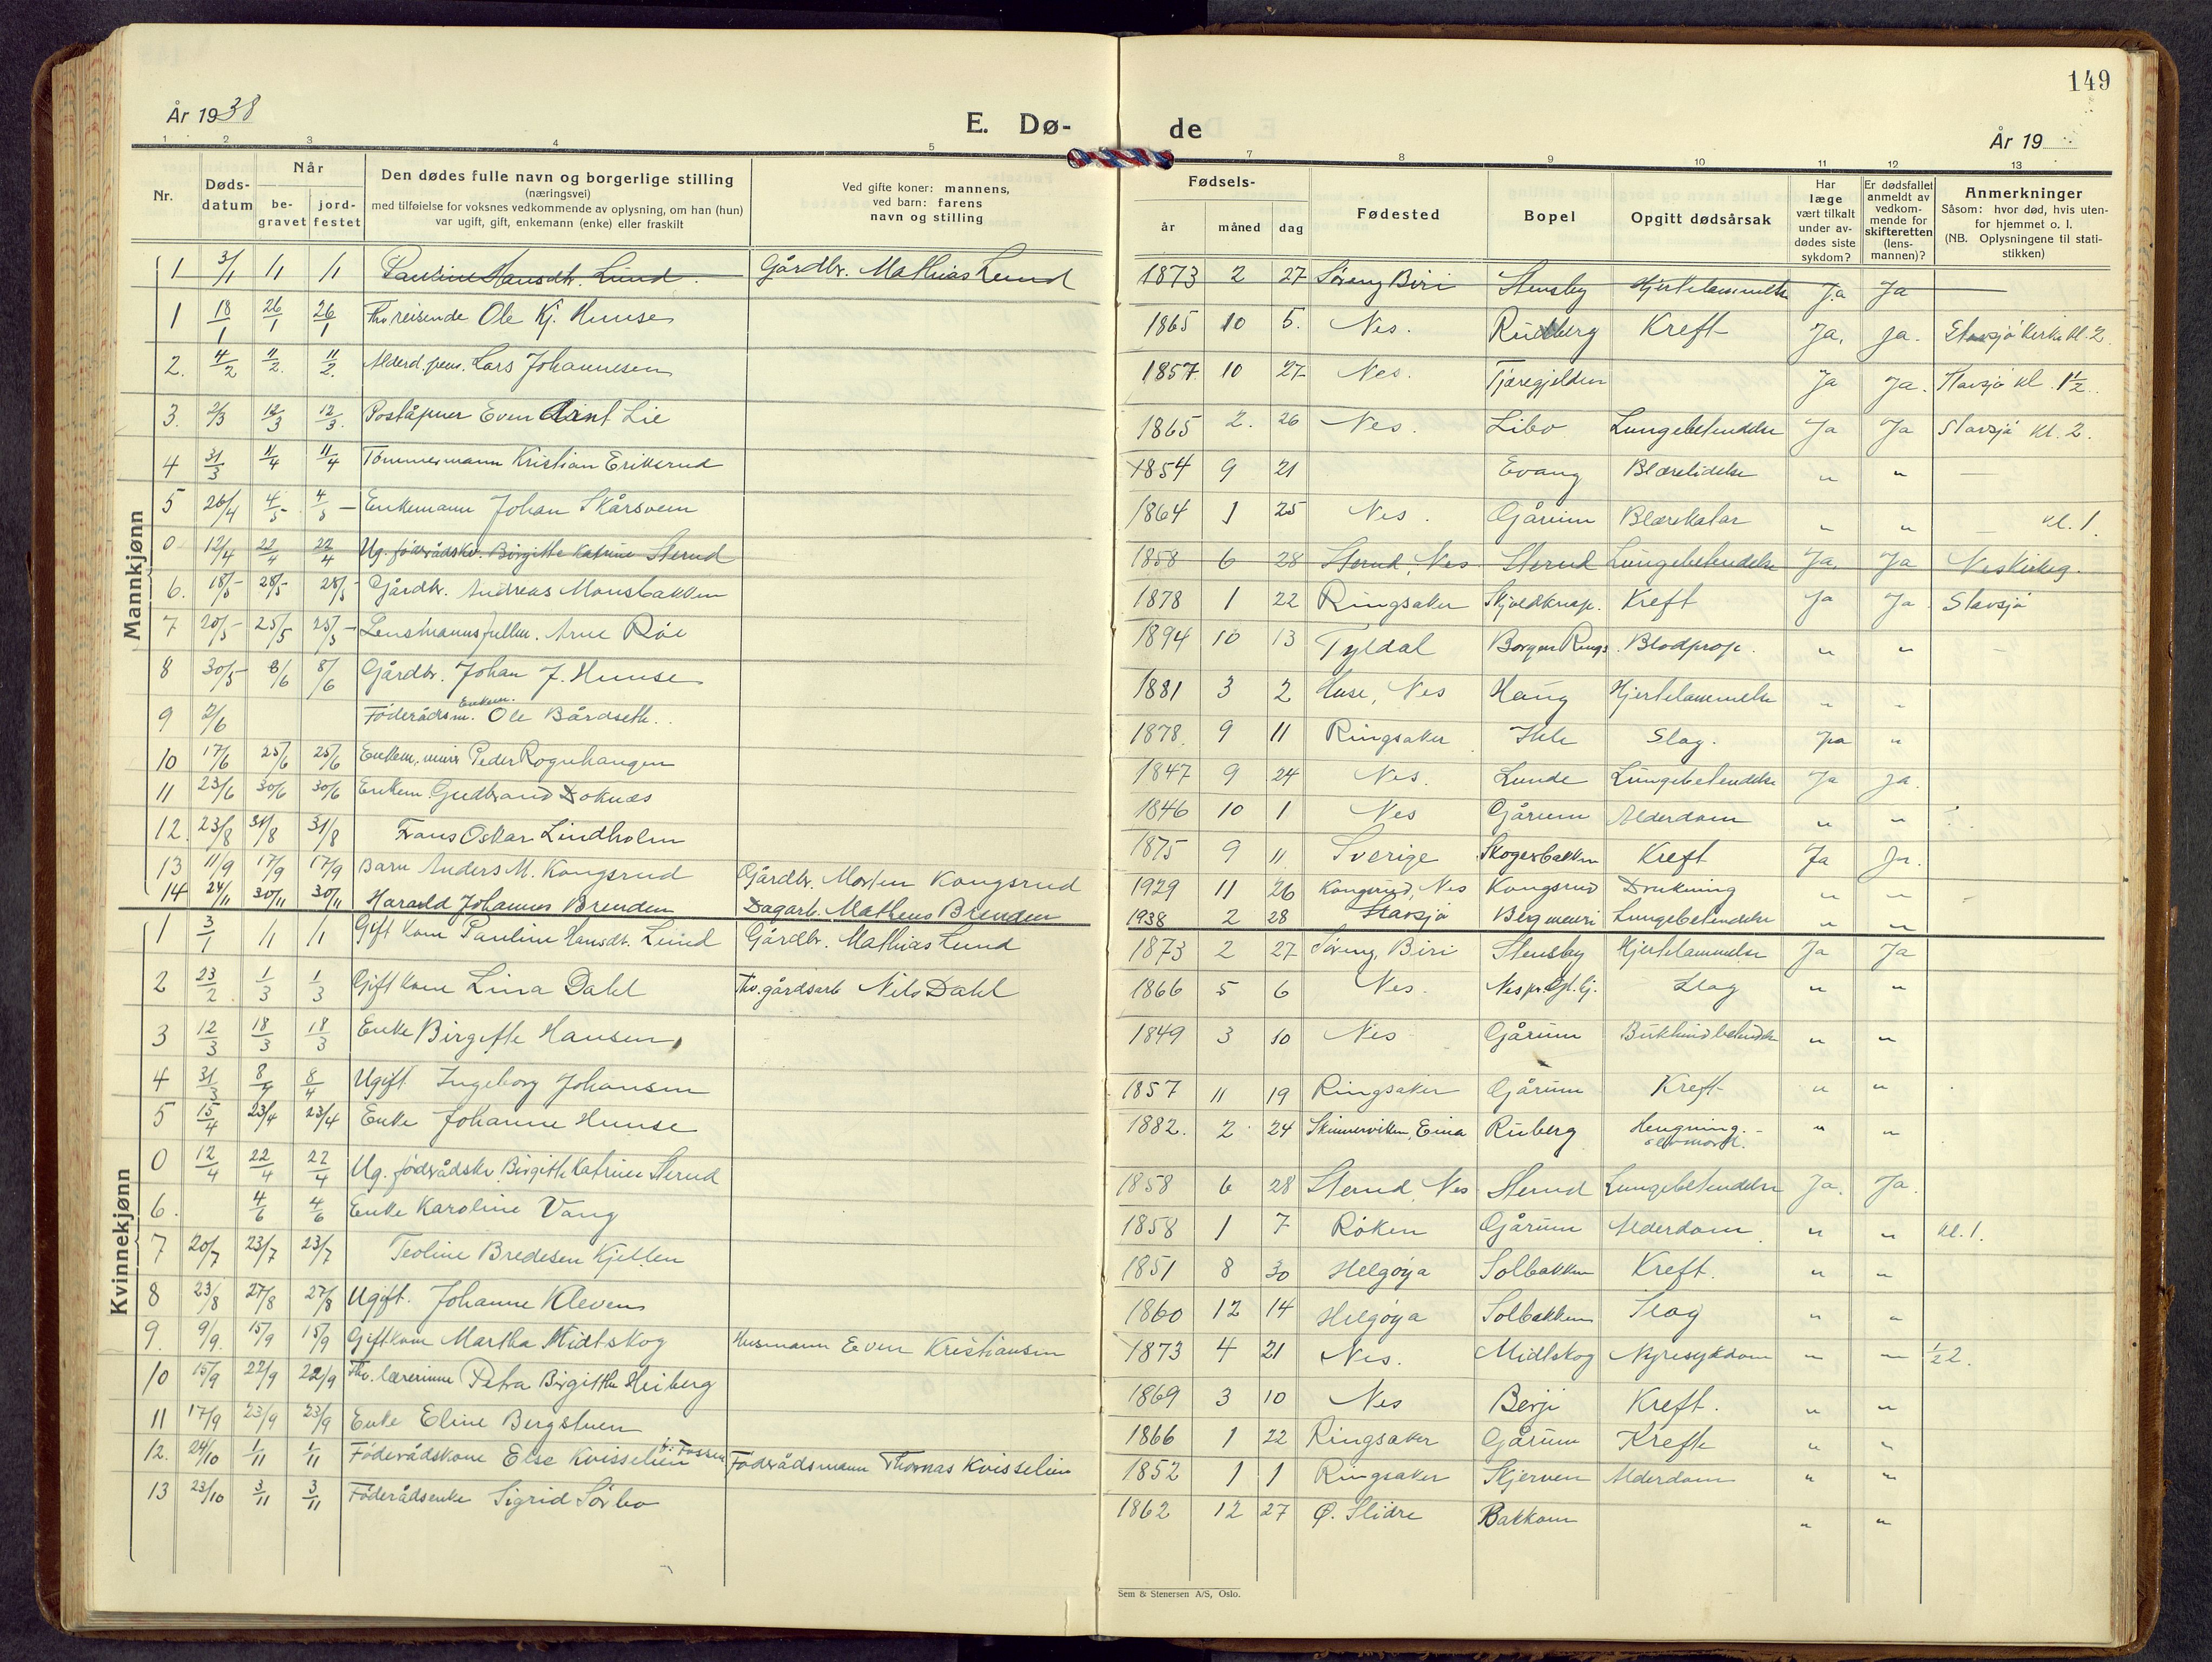 149
År 1938
E. Dø-
de
År 19
1 2 3 4 5 7 8 9 10 11 12 13
Nr.
Døds-
datum
Når
be-
gravet
jord-
festet
Den dødes fulle navn og borgerlige stilling
(næringsvei)
med tilføielse for voksnes vedkommende av oplysning, om han (hun)
var ugift, gift, enkemann (enke) eller fraskilt
Ved gifte koner: mannens,
ved barn: farens
navn og stilling
Fødsels-
år måned dag
Fødested
Bopel
Opgitt dødsårsak
Har
læge
vært tilkalt
under av-
dødes siste
sykdom?
Er dødsfallet
anmeldt av
vedkom-
mende for
skifteretten
(lens-
mannen)?
Anmerkninger
Såsom: hvor død, hvis uten-
for hjemmet o. l.
(NB. Oplysningene til stati-
stikken)
Mannkjønn
1 3/1 1/1 1/1 Pauline Hansdtr. Lund. Gårdbr. Mathias Lund 1873 2 27 Søreng Biri Stensby Hjertelammelse Ja Ja
1 18/1 26/1 26/1 Thv. reisende Ole Kj. Hunse 1865 10 5. Nes. Rudberg Kreft Ja, Ja. Stavsjø kirke kl. 2.
2. 4/2 11/2. 11/2. Alderd. pens. Lars Johannesen 1857 10 27 Nes. Tjæregjelden Ja Ja. Stavsjø kl. 1 1/2.
3. 2/3 12/3 12/3. Poståpner Even Arnt Lie 1865 2. 26 Nes. Libo Lungebetendelse Ja Ja Stavsjø kl. 2.
4 31/3 11/4 11/4 Tømmermann Kristian Erikerud 1854 9 21 Evang Blærelidelse " "
5 26/4 4/5 4/5 Enkemann Johan Skårsveen 1864 1 25 Nes. Gårum Blærekatar " " kl. 1.
0 12/4 22/4 22/4 Ug. føderådskv. Birgitte Katrine Sterud 1858 6 28 Sterud, Nes Sterud Lungebetendelse Ja, Ja Neskirkeg.
6. 18/5 28/5 28/5 Gårdbr. Andreas Monsbakken 1878 1 22 Ringsaker Skjoldknap. Kreft Ja Ja Stavsjø
7 20/5 25/5 25/5 Lensmannsfullm. Arne Røe 1894 10 13 Tyldal Borgen Rings. Blodprop. " "
8 30/5 8/6 8/6 Gårdbr. Johan J. Hunse 1881 3 2 Huse, Nes Haug Hjertelammelse " "
9 2/6 Føderådsm. Enkem. Ole Bårdseth. 1878. 9 11 Ringsaker Slag. Ja "
10 17/6 25/6 25/6 Enkem. Peder Rognhaugen 1847 9 24 Nes. Lunde Lungebetendelse Ja Ja.
11 23/6 30/6 30/6 Enkem Gudbrand Doknæs 1846 10 1 Nes Gårum Alderdom " "
12. 23/8 31/8 31/8 Frans Oskar Lindholm 1875 9 11 Sverige Skogerbakken Kreft Ja Ja.
13 11/9 17/9 17/9 Barn Anders M. Kongsrud Gårdbr. Morten Kongsrud 1929 11 26 Kongsrud, Nes Kongsrud Drukning " "
14 24/11 30/11 30/11 Harald Johannes Brenden Dagarb. Matheus Brenden 1938 2 28 Stavsjø Lungebetendelse " "
Kvinnekjønn
1 3/1 1/1 1/1 Gift kone Pauline Hansdt. Lund Gårdbr. Mathias Lund 1873 2 27 Søreng, Biri Stensby Hjertelammelse Ja Ja
2 23/2 1/3 1/3 Gift kone Lina Dahl Thv. gårdsarb Nils Dahl 1866 5 6 Nes. Slag " "
3 12/3 18/3 18/3 Enke Birgitte Hansen, 1849 3 10 Nes Gårum Bukhindebetendelse " "
4 31/3 8/4 8/4 Ugift Ingeborg Johansen 1857 11 19 Ringsaker Gårum Kreft " "
5 15/4 23/4 23/4 Enke Johanne Hunse 1882. 2 24 Skinnerviken, Eina Ruberg Hengning. selvmord. " "
0 12/4 22/4 22/4 Ug. føderådskv. Birgitte Katrine Sterud 1858 6 28 Sterud, Nes Sterud Lungebetendelse Ja. Ja.
6. 4/6 4/6 Enke Karoline Vang 1858 1 7 Røken Gårum Alderdom. " " kl. 1.
7 20/7 23/7 23/7 Teoline Bredesen Kjellen 1851 8 30 Helgøya Solbakken Kreft. " "
8 23/8 27/8 27/8 Ugift. Johanne Kleven 1860 12 14 Helgøya Solbakken Slag " "
9. 9/9. 15/9 15/9 Gift kone Martha Midtskog Husmann Even Kristiansen 1873 4 21 Nes. Midtskog Nyresykdom " " 1/2 2.
10 15/9 22/9 22/9 Thv. lærerinne Petra Birgitte Heiberg 1869 3 10 Nes Berji Kreft. " "
11 17/9 23/9 23/9 Enke Eline Bergstuen 1866 1 22 Ringsaker Gårum Kreft " "
12. 24/10 1/11 1/11 Føderådskone Else Kvisselien Føderådsmann Thomas Kvisselien 1852 1 1 Ringsaker Skjerven Alderdom " "
13 23/10 3/11 3/11 Føderådsenke Sigrid Sørbo 1862 12 27 Ø. Slidre Bakkom " "
Sem & Stenersen A/S, Oslo.